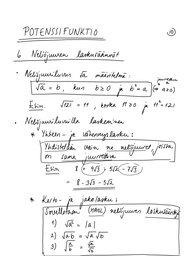 POTENSSIFUNKTIO
6 Neliöjuuren laskusäännöt
- Neliöjuuriluvun √a määritelmä:
√a = b, kun b ≥ 0 ja b² = a (a ≥ 0)
Esim. √121 = 11, koska 11 ≥ 0 ja 11² = 121
- Neliöjuurilla laskeminen
* Yhteen- ja vähennyslasku:
Yhdistellään vain ne neliöjuuret, joissa
on sama juurrettava
Esim
= 8 - 3√3 - 5√2
* Kerto- ja jakolasku:
Sovelletaan (MAOL) neliöjuuren laskusääntöjä
1) √a² = |a|
2) √ab = √a √b
3) √a/b = √a/√b